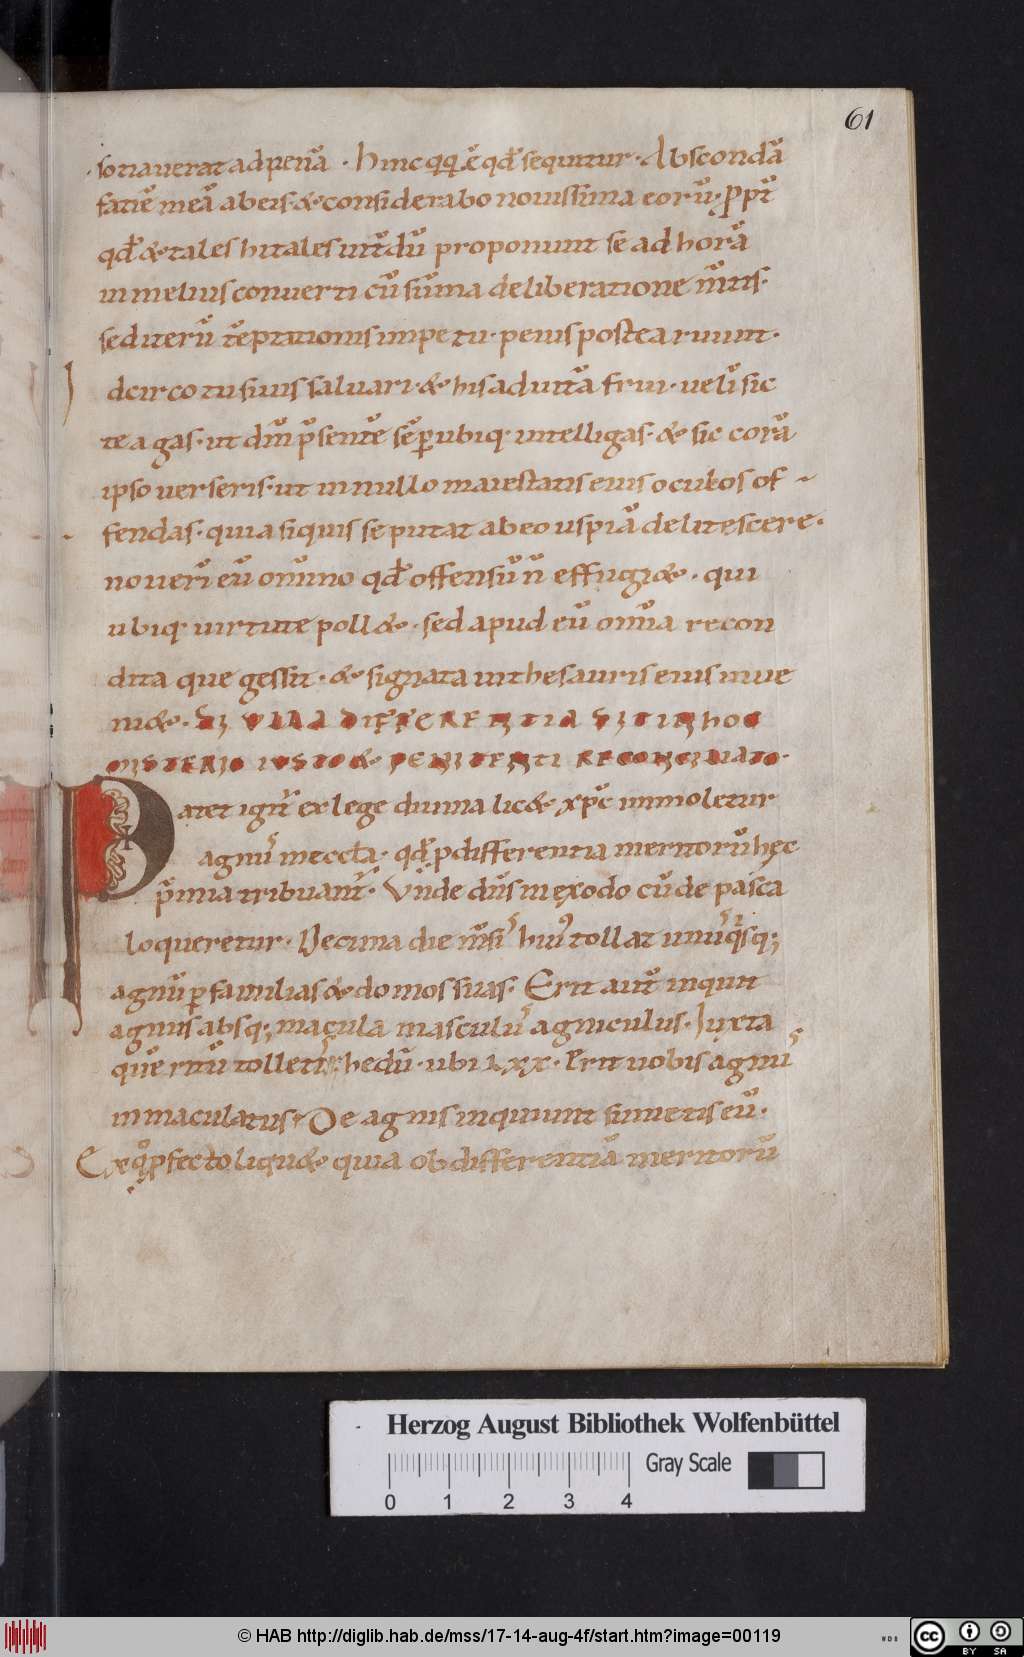 61
sotiauerat ad penā · Hinc qq; ē qđ sequitur · Abscondā
faciē meā ab eis · & considerabo nouissima eorū · ꝓpt̄
qđ & tales hi tales int̄dū proponunt se ad horā
in melius conuerti cū sūma deliberatione m̄tis ·
sed iterū tēptationis impetu · peius postea ruunt ·
dcirco tu si uis saluari · & his ad uitā frui · uelī sic
te agas · ut dm̄ p̄sentē sēp ubiq; intelligas · & sic corā
ipso uerseris · ut in nullo maiestatis eius oculos of
fendas · quia siquis se putat ab eo uspiā delitescere ·
nouerī eū omnino qđ offensū n̄ effugi& · qui
ubiq; uirtute poll& · sed apud eū omīa recon
dita que gessit · & signata in thesauris eius inue
ni& · SI ULLA DIFFERENTIA SIT IN HOC
MISTERIO IUSTO & PENITENTI RECONCILIATO ·
Patet igit̄ ex lege diuina lic& xp̄c immoletur
agnus in eccl̄a · qđ p differentia meritorū hęc
p̄mia tribuant̄ · Vnde dn̄s in exodo cū de pasca
loqueretur · Decima die m̄sis huius tollat unusq̄sq;
agnū p familias & domos suas · Erit aut̄ inquit
agnus absq; macula masculus agniculus · Iuxta
quē ritū tolletis & hedū · ubi LXX · Erit uobis agnus
inmaculatus · De agnis inquiunt sumetis eū ·
Ex qo pfecto liqu& quia ob differentiā meritorū
Herzog August Bibliothek Wolfenbüttel
Gray Scale
0 1 2 3 4
© HAB http://diglib.hab.de/mss/17-14-aug-4f/start.htm?image=00119
WDB
cc BY SA